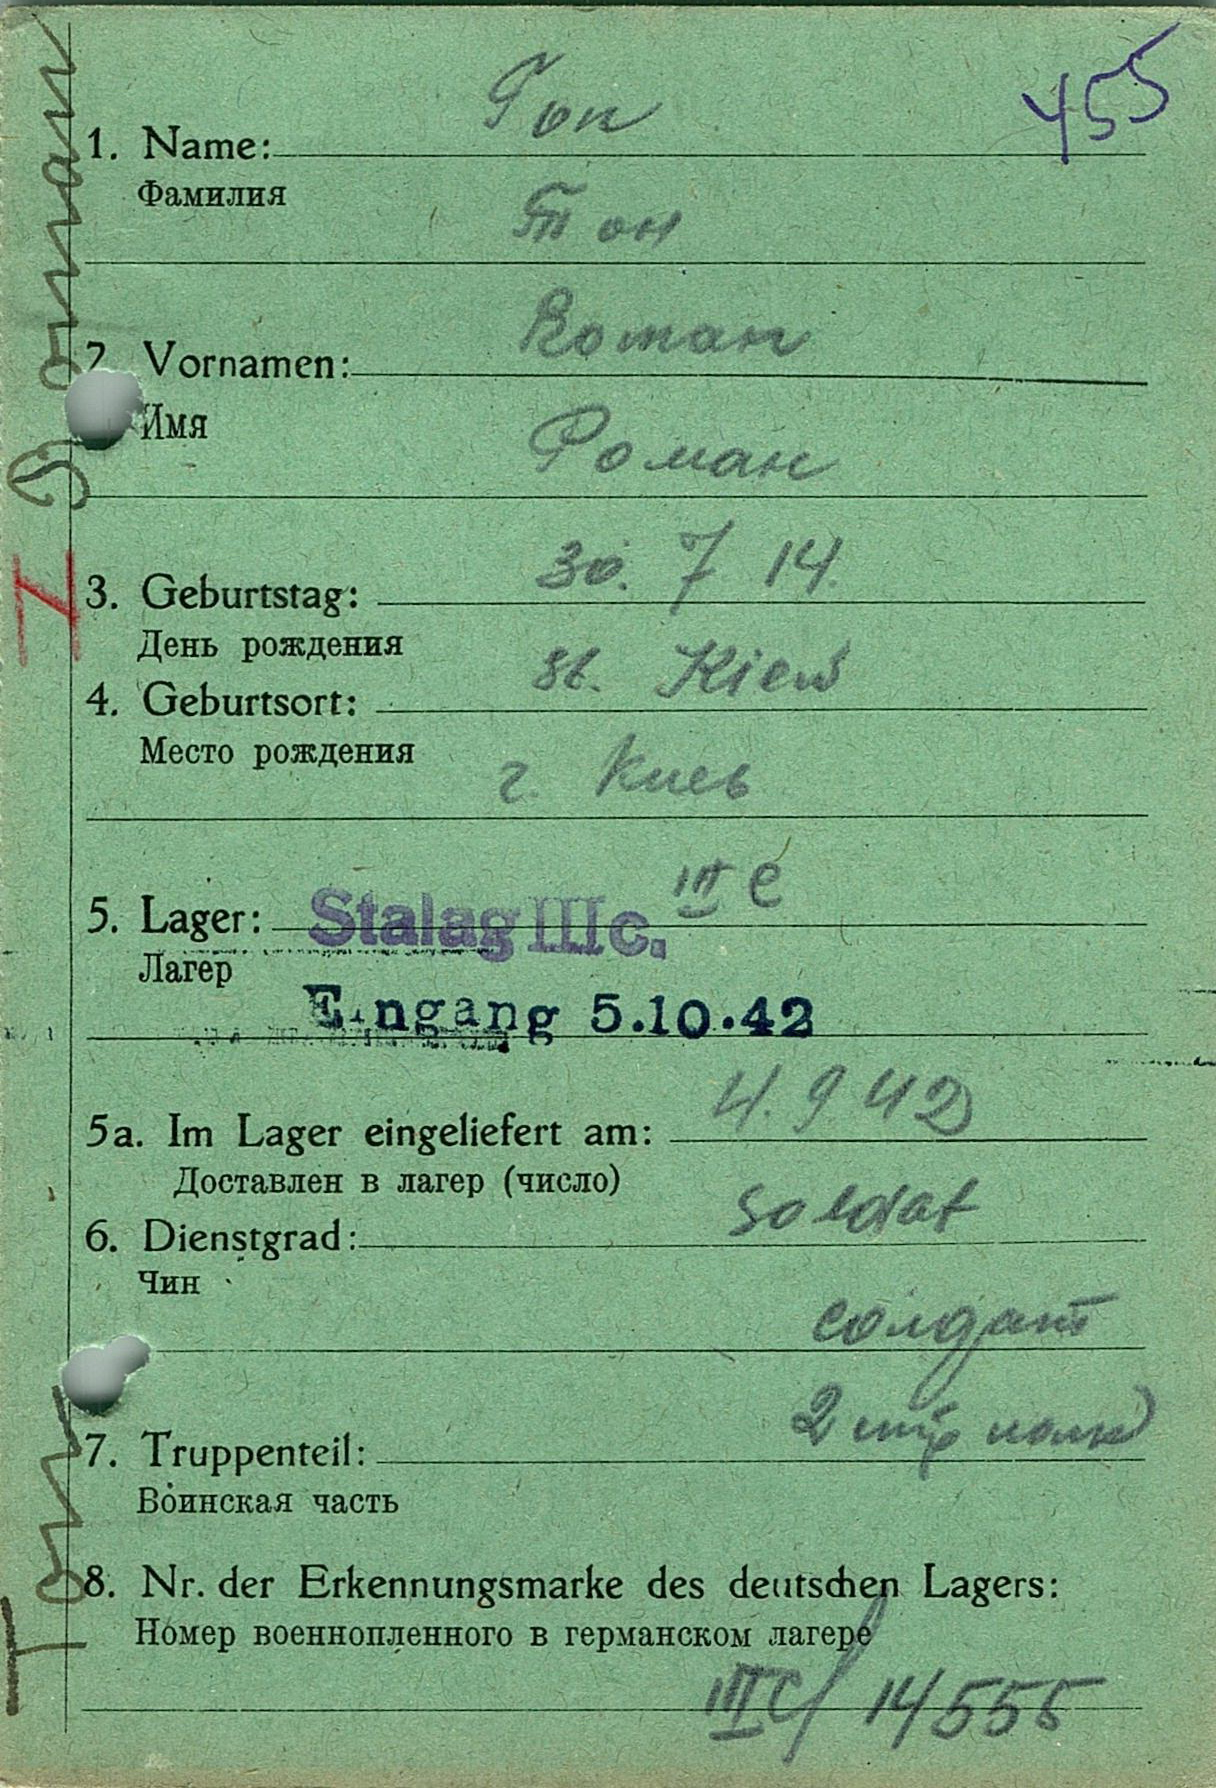 455
Ton
1. Name:
Фамилия
Тон
Roman
2. Vornamen:
Имя
Роман
30. 7 14.
3. Geburtstag:
День рождения
st. Kiew
4. Geburtsort:
Место рождения
г. Киев
III C
5. Lager: Stalag III c.
Лагер
Eingang 5.10.42
4. 9 42
5a. Im Lager eingeliefert am:
Доставлен в лагер (число)
Soldat
6. Dienstgrad:
Чин
солдат
2 стр полк
7. Truppenteil:
Воинская часть
8. Nr. der Erkennungsmarke des deutschen Lagers:
Номер военнопленного в германском лагере
III C/ 14555
Ton Roman